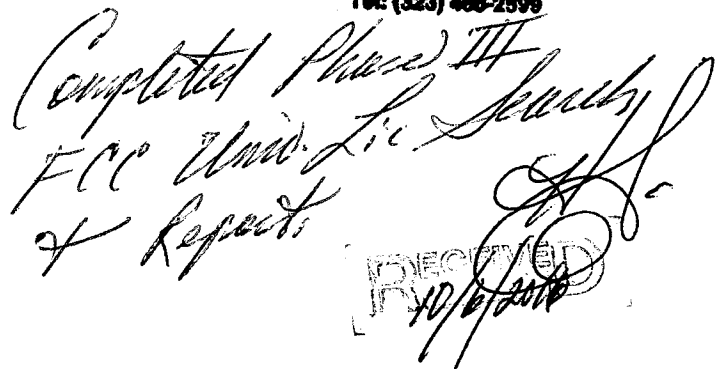 Tel: (323) 466-2599
Completed Phase III
FCC Univ. Lic Search
& Reports
RECEIVED
10/6/2016